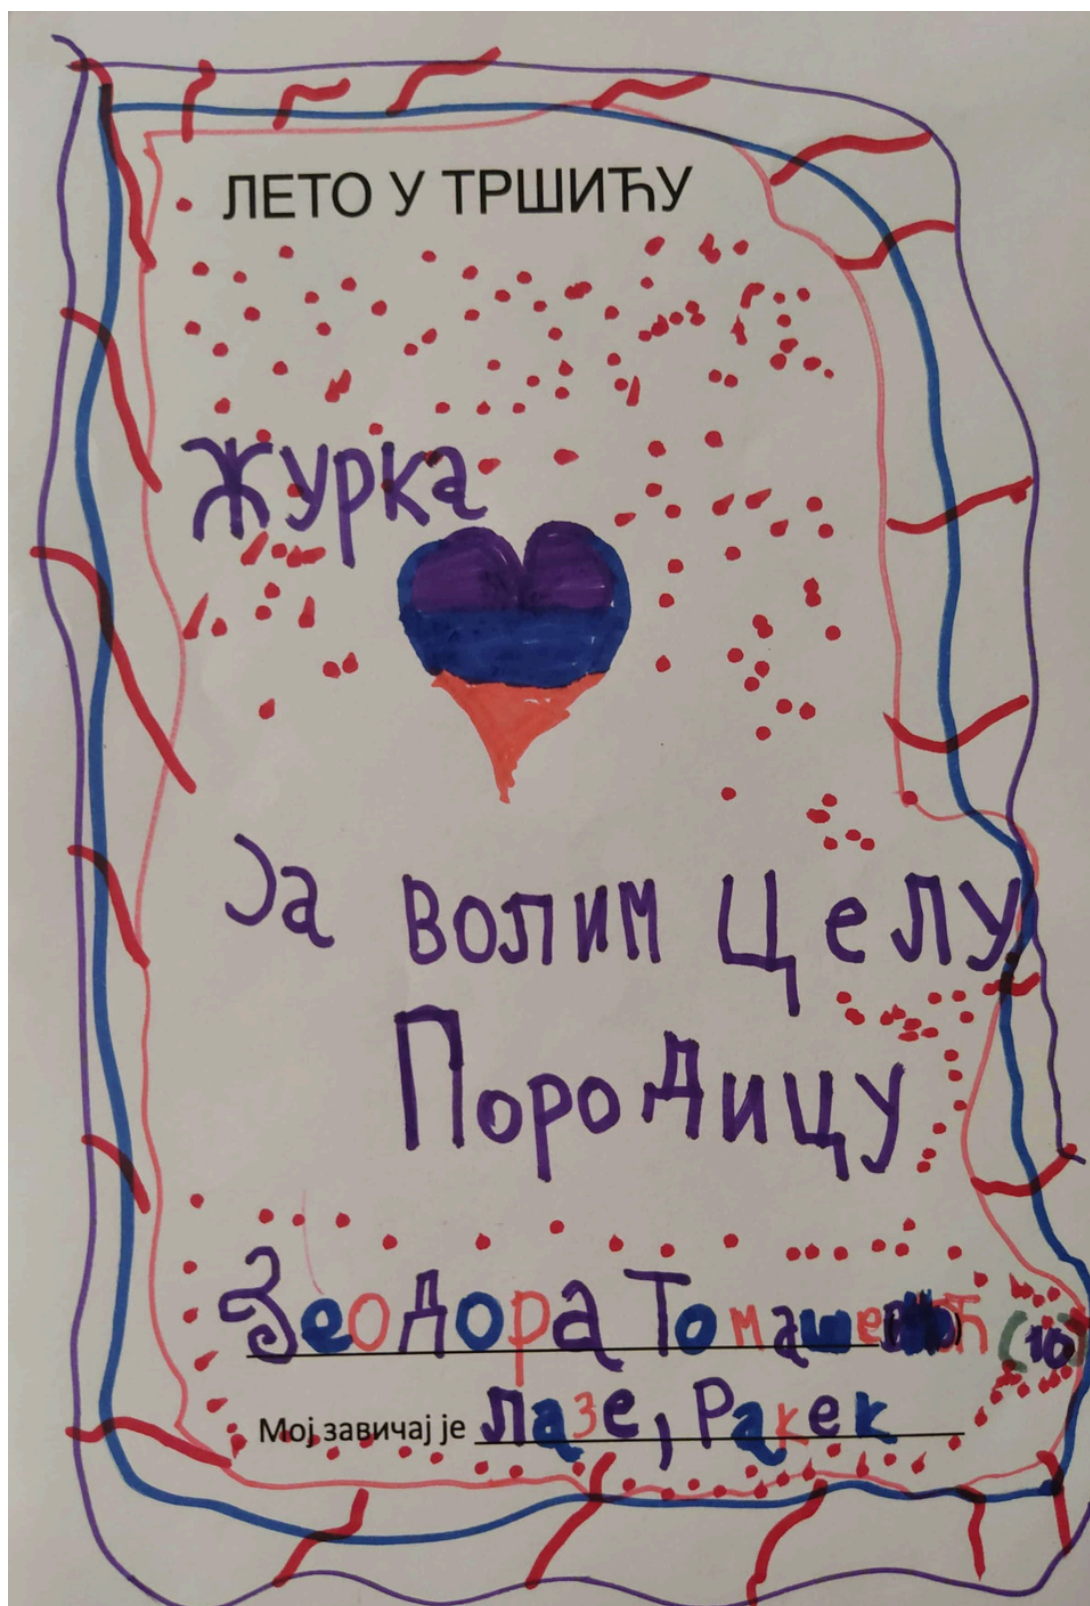 ЛЕТО У ТРШИЋУ
Журка
Ја волим Целу
Породицу
Зеодора (10)
Мој завичај је Лазе, Ракек